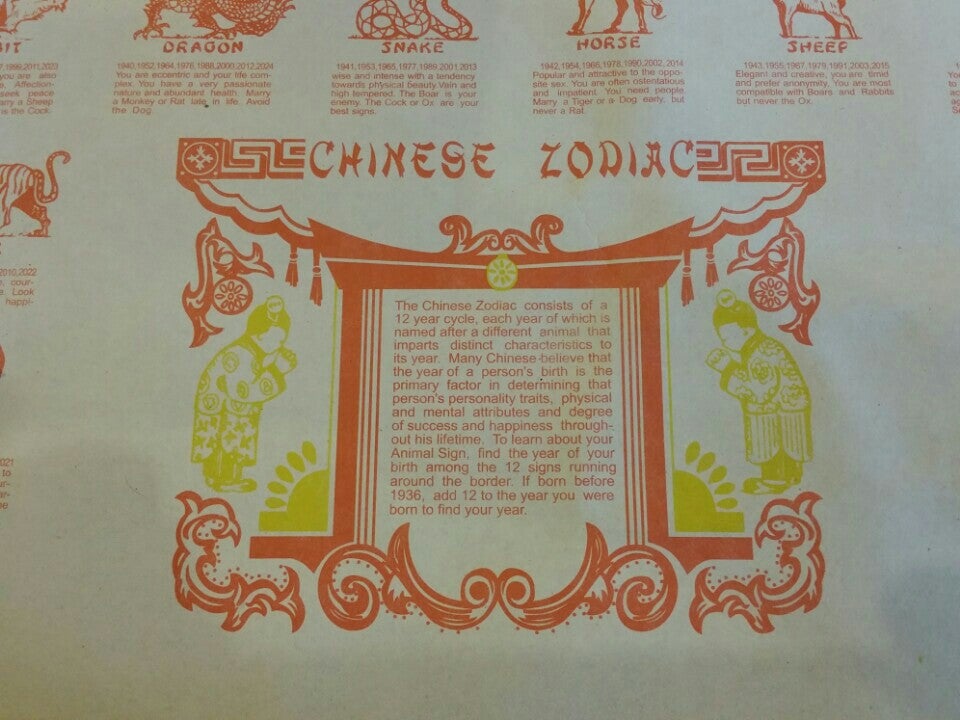 BIT
DRAGON
SNAKE
HORSE
SHEEP
1999,2011,2023
you are also
Affection-
seek peace
arry a Sheep
is the Cock.
1940,1952,1964,1976,1988,2000,2012,2024
You are eccentric and your life com-
plex. You have a very passionate
nature and abundant health. Marry
a Monkey or Rat late in life. Avoid
the Dog.
1941,1953,1965,1977,1989,2001,2013
wise and intense with a tendency
towards physical beauty. Vain and
high tempered. The Boar is your
enemy. The Cock or Ox are your
best signs.
1942,1954,1966,1978,1990,2002, 2014
Popular and attractive to the oppo-
site sex. You are often ostentatious
and impatient. You need people.
Marry a Tiger or a Dog early, but
never a Rat.
1943,1955,1967,1979,1991,2003,2015
Elegant and creative, you are timid
and prefer anonymity. You are most
compatible with Boars and Rabbits
but never the Ox.
CHINESE ZODIAC
2010,2022
cour-
e. Look
happi-
The Chinese Zodiac consists of a
12 year cycle, each year of which is
named after a different animal that
imparts distinct characteristics to
its year. Many Chinese believe that
the year of a person's birth is the
primary factor in determining that
person's personality traits, physical
and mental attributes and degree
of success and happiness through-
out his lifetime. To learn about your
Animal Sign, find the year of your
birth among the 12 signs running
around the border. If born before
1936, add 12 to the year you were
born to find your year.
2021
to